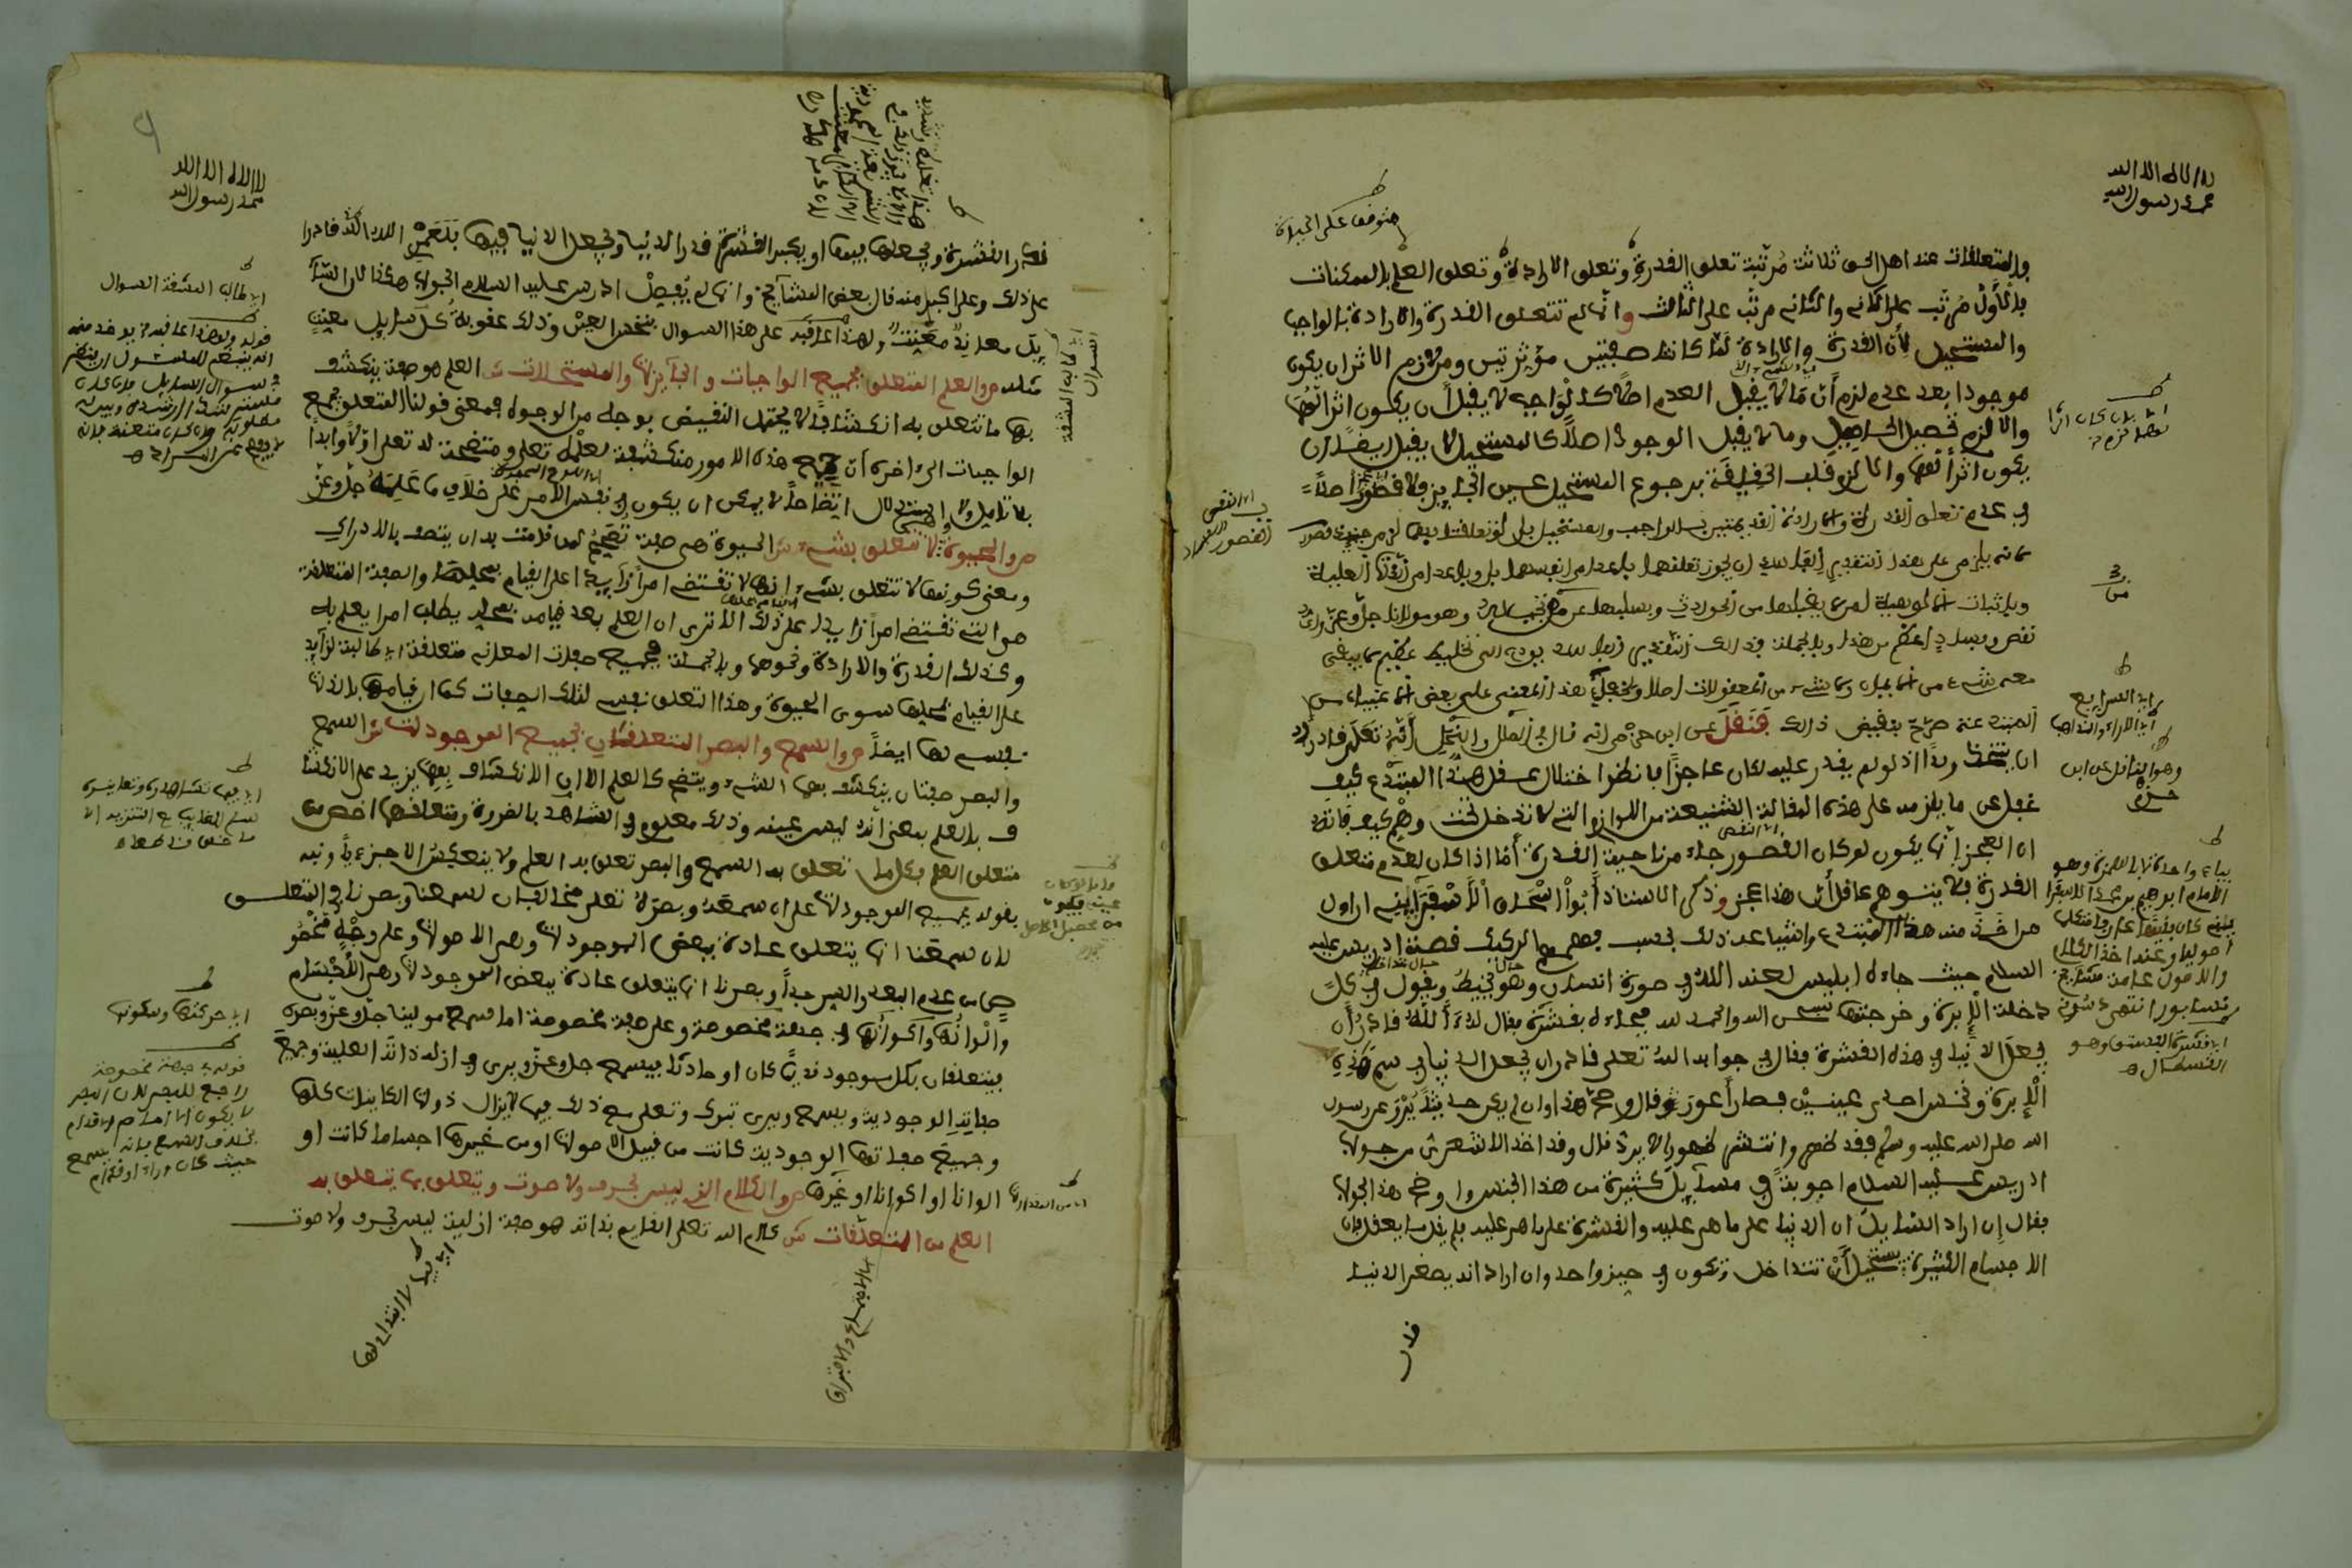 لا اله الا الله
محمد رسول الله
متوقفا على الحياة
والمتعلقات عند اهل الحق ثلاثة مرتبة تعلق القدرة وتعلق الارادة وتعلق العلم بالممكنات
فالاول مرتب على الثاني والثاني مرتب على الثالث وانما لم تتعلق القدرة والارادة بالواجب
والمستحيل لان القدرة والارادة لما كانتا صفتين مؤثرتين ومن لازم الاثر ان يكون
موجودا بعد عدم لزم ان ما لا يقبل العدم اصلا كالواجب لا يقبل ان يكون اثرا لهما
والا لزم تحصيل الحاصل وما لا يقبل الوجود اصلا كالمستحيل لا يقبل ايضا ان
يكون اثرا لهما والا لزم قلب الحقيقة برجوع المستحيل عين الجايز فلا قصور اصلا
في عدم تعلق القدرة والارادة القديمتين بالواجب والمستحيل بل لو تعلقتا بهما لزم حينئذ القصور
لانه يلزم على هذا التقدير الفاسد ان يجوز تعلقهما باعدام انفسهما بل وباعدام الذات العلية
وباثبات الالوهية لمن لا يقبلها من الحوادث وبسلبها عن من تجب له وهو مولانا جل وعز واي
نقص وفساد اعظم من هذا وبالجملة فذلك التقدير الفاسد يودي الى تخليط عظيم لا يبقى
معه شيء من الايمان ولا شيء من المعقولات اصلا ولخفاء هذا المعنى على بعض الاغبياء من
المبتدعة صرح بنقيض ذلك فنقل عن ابن حزم انه قال في الملل والنحل انه تعلى قادر
ان يتخذ ولدا اذ لو لم يقدر عليه لكان عاجزا فانظر اختلال عقل هذا المبتدع كيف
غفل عن ما يلزمه على هذه المقالة الشنيعة من اللوازم التي لا تدخل تحت وهم وكيف فاته
ان العجز انما يكون لو كان القصور جاء من ناحية القدرة اما اذا كان لعدم متعلق
القدرة فلا يتوهم عاقل ان هذا عجز وذكر الاستاذ ابو اسحاق الاسفرايني ان اول
من اخذ منه هذا المبتدع واشياعه ذلك بحسب فهمهم الركيك قصة ادريس عليه
السلام حيث جاءه ابليس لعنه الله في صورة انسان وهو يخيط ويقول في كل
دخلة الابرة وخرجتها سبحن الله والحمد لله فجاءه بقشرة فقال له آالله قادر ان
يجعل الدنيا في هذه القشرة فقال في جوابه الله تعلى قادر ان يجعل الدنيا في سم هذه
الابرة ونخس احدى عينيه فصار اعور قال وهذا وان لم يكن حديثا يروى عن رسول
الله صلى الله عليه وسلم فقد ظهر وانتشر ظهورا لا يرد قال وقد اخذ الاشعري من جواب
ادريس عليه السلام اجوبة في مسايل كثيرة من هذا الجنس واوضح هذا الجواب
فقال ان اراد السايل ان الدنيا على ما هي عليه والقشرة على ما هي عليه فلم يقل ما يعقل فان
الاجسام الكثيرة يستحيل ان تتداخل وتكون في حيز واحد وان اراد انه يصغر الدنيا
قدر
اي النقص
وهو الناقل عن ابن حزم
لا اله الا الله
محمد رسول الله
قدر القشرة ويجعلها فيها او يكبر القشرة قدر الدنيا ويجعل الدنيا فيها فلعمري الله تعلى قادر
على ذلك وعلى اكبر منه قال بعض المشايخ وانما لم يفصل ادريس عليه السلام الجواب هكذا لان السا
يل معاند متعنت ولهذا عاقبه على هذا السوال بنخس العين وذلك عقوبة كل سايل متعنت
مثله ص والعلم المتعلق بجميع الواجبات والجايزات والمستحيلات ش العلم هو صفة ينكشف
بها ما تتعلق به انكشافا لا يحتمل النقيض بوجه من الوجوه فمعنى قولنا المتعلق بجميع
الواجبات الى اخره ان جميع هذه الامور منكشفة لعلمه تعلى ومتضحة له تعلى ازلا وابدا
بلا تامل ولا استدلال اتضاحا لا يمكن ان يكون في نفس الامر على خلاف ما علمه جل وعز
ص والحيوة لا تتعلق بشيء ش الحيوة هي صفة تصحح لمن قامت به ان يتصف بالادراك
ومعنى كونها لا تتعلق بشيء انها لا تقتضي امرا زايدا على القيام بمحلها والصفة المتعلقة
هي التي تقتضي امرا زايدا على ذلك الا ترى ان العلم بعد قيامه بمحله يطلب امرا يعلم به
وكذلك القدرة والارادة ونحوها وبالجملة فجميع صفات المعاني متعلقة اي طالبة لزايد
على القيام بمحلها سوى الحيوة وهذا التعلق نفسي لتلك الصفات كما ان قيامها بالذات
نفسي لها ايضا ص والسمع والبصر المتعلقان بجميع الموجودات ش السمع
والبصر صفتان ينكشف بهما الشيء ويتضح كالعلم الا ان الانكشاف بهما يزيد على الانكشا
ف بالعلم بمعنى انه ليس عينه وذلك معلوم في الشاهد بالضرورة ومتعلقهما اخص من
متعلق العلم فكل ما تعلق به السمع والبصر تعلق به العلم ولا ينعكس الا جزءيا ونبه
بقوله بجميع الموجودات على ان سمعه وبصره تعلى مخالفان لسمعنا وبصرنا في التعلق
لان سمعنا انما يتعلق عادة ببعض الموجودات وهي الاصوات وعلى وجه مخصو
ص من عدم البعد والسر جدا وبصرنا انما يتعلق عادة ببعض الموجودات وهي الاجسام
والوانها واكوانها في جهة مخصوصة وعلى صفة مخصوصة اما سمع مولينا جل وعز وبصره
فيتعلقان بكل موجود قديما كان او حادثا فيسمع جل وعز ويرى في ازله ذاته العلية وجميع
صفاته الوجودية ويسمع ويرى تبارك وتعلى مع ذلك فيما لا يزال ذوات الكاينات كلها
وجميع صفاتها الوجودية كانت من قبيل الاصوات او من غيرها اجساما كانت او
الوانا او اكوانا او غيرها ص والكلام الذي ليس بحرف ولا صوت ويتعلق بما يتعلق به
العلم من المتعلقات ش كلام الله تعلى القايم بذاته هو صفة ازلية ليس بحرف ولا صوت
اي حركتها وسكونها
قوله في جهة مخصوصة
راجع للبصر لان البصر
لا يكون الا امام او قدام
بخلاف السمع فانه يسمع
حيث كان وراء او قدام